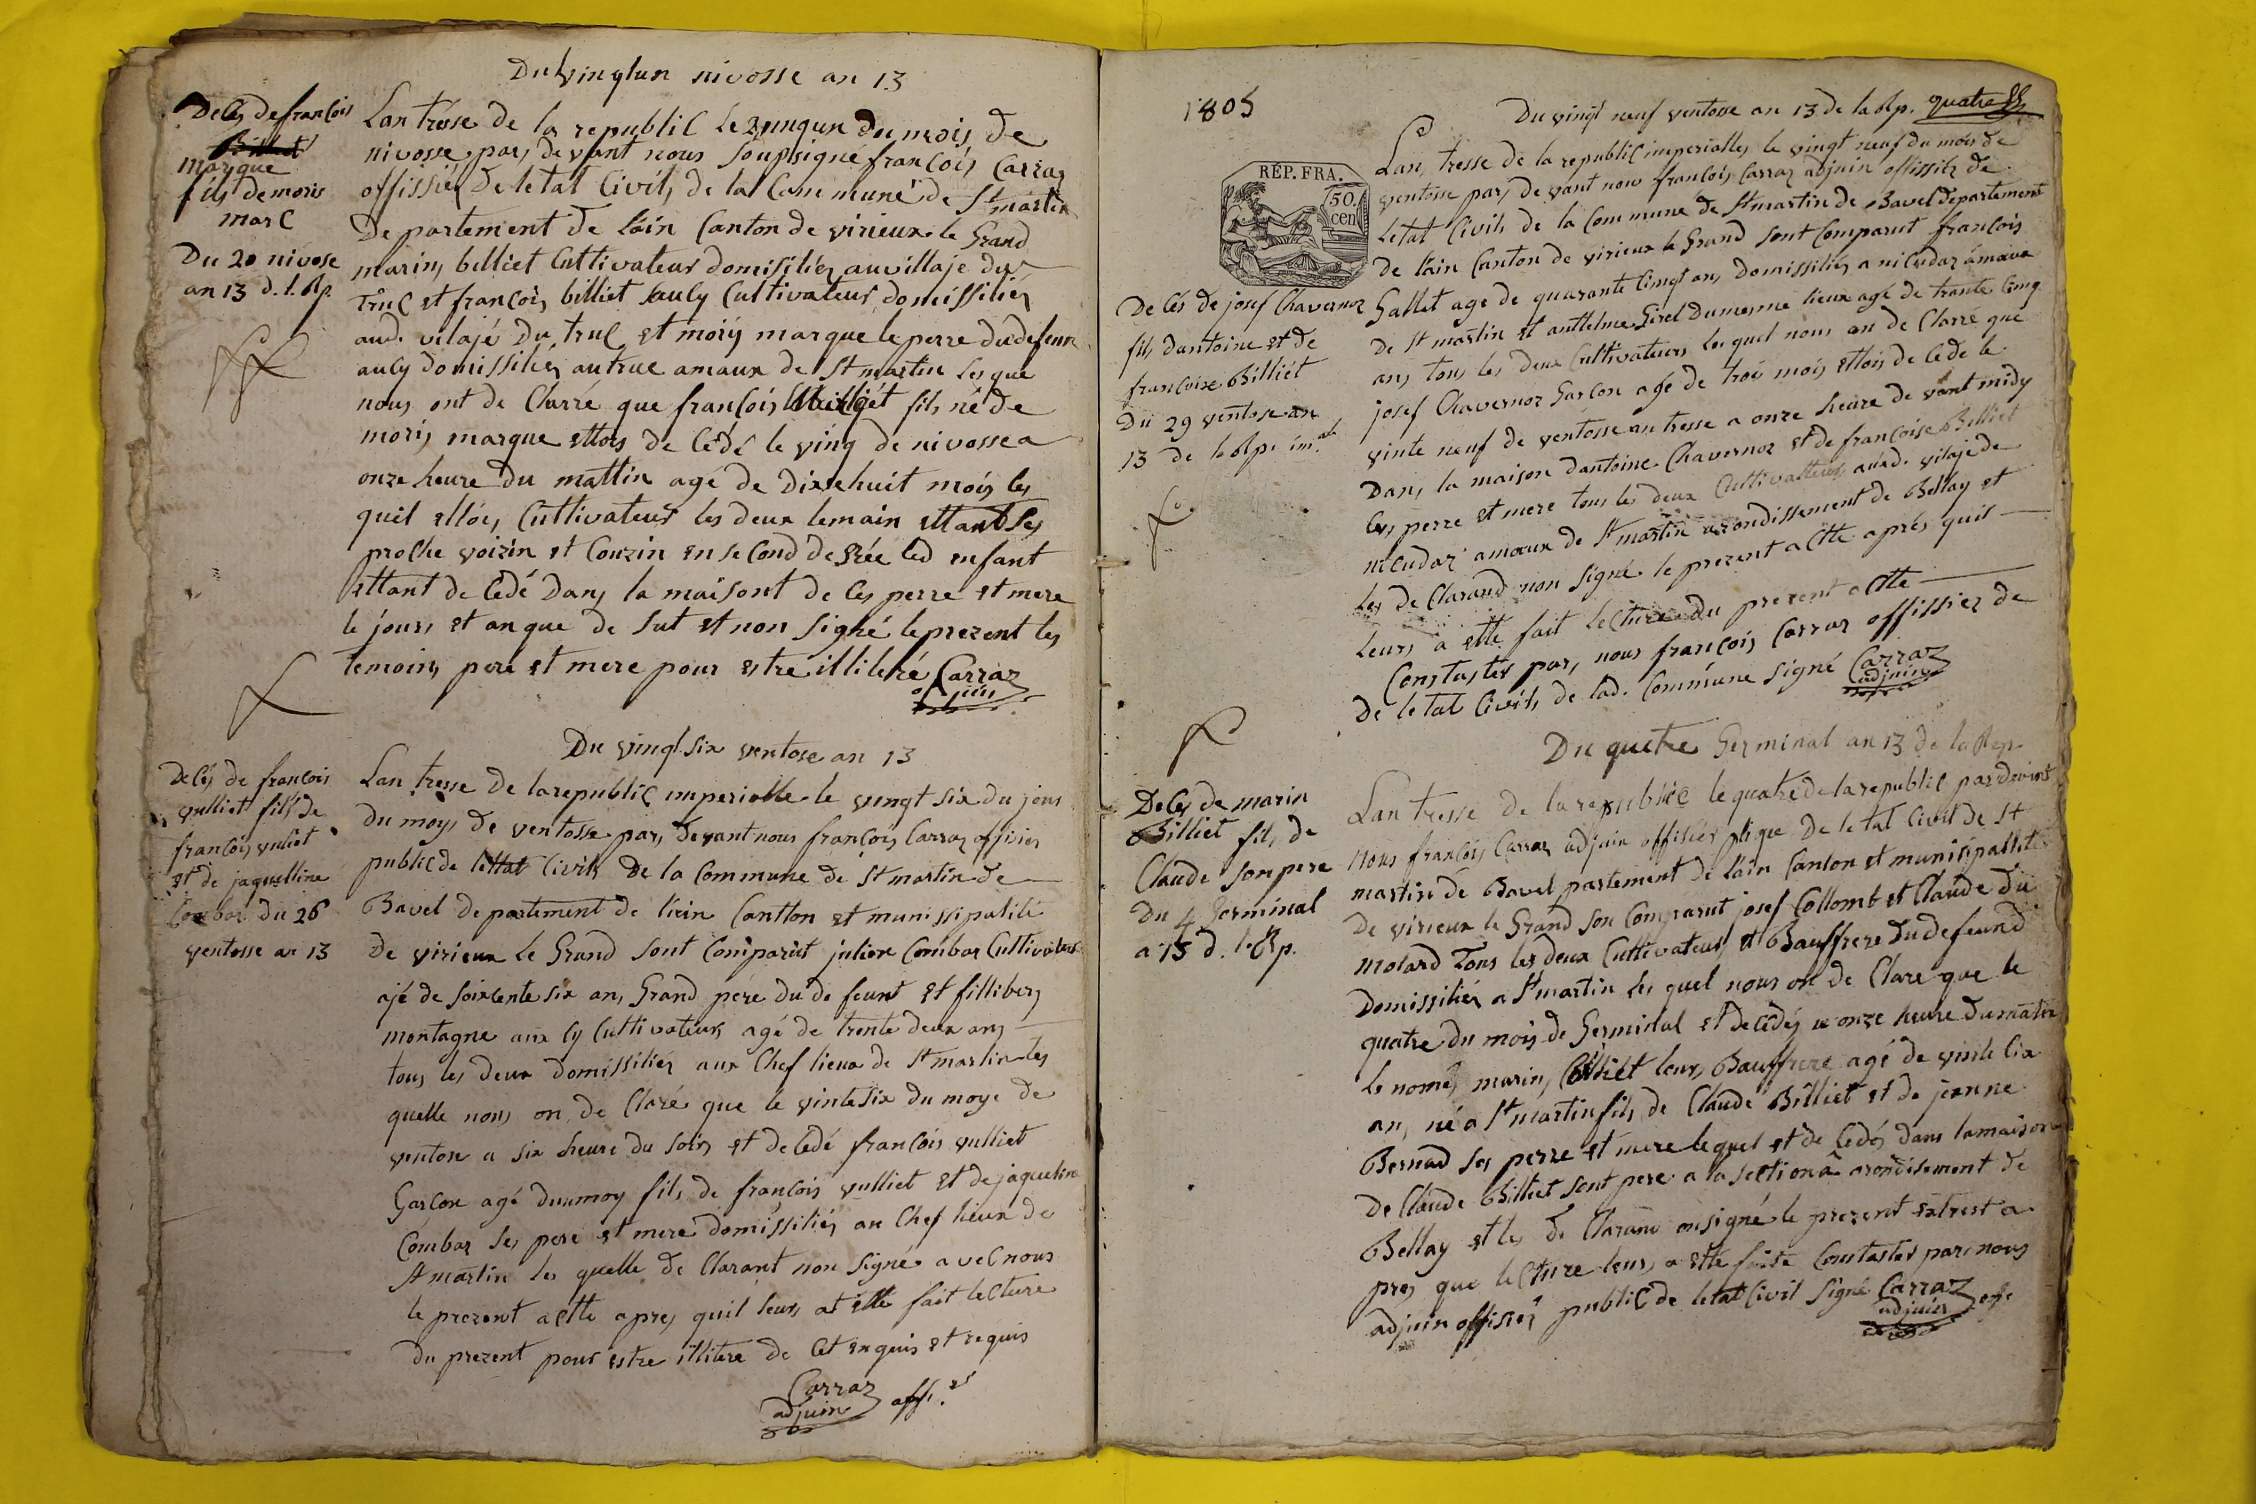 Du vingtun nivosse an 13
Decés de françois
Billiet
marque
fils de moris
marc
Du 20 nivose
an 13 d. l. Rp.
Lan trésse de la republic le 2vingun du mois de
nivosse par devant nous soupsigné françois Carraz
offissiér de letat Civils de la Commune de St martin
Departement de l'ain Canton de virieux le Grand
marin billiet Cultivateur domisiliéz au villaje du
truc et françois billiet Cultivateur domissiliéz
aud. vilajé du truc et moiy marque le perre du defeunt
domissiliéz au truc amaux de St martin les que
nous ont de Clarré que françois fils né de
moris marque ettois de Cédé le ving de nivosse a
onze heure du mattin agé de Dixehuit mois les
quil ettois Cultivateur les deux temain ettant les
proche voizin et Couzin en se Cond de grée led enfant
ettant de Cédé Dans la maisont de Ces perre et mere
le jours et an que de sut et non signé le prezent les
temoins pere et mere pour estre illiteré Carraz
adjuin
Du vingt six ventose an 13
Decés de françois
vulliet fils de
françois vuliet
et de jaquelline
Combaz du 26
ventosse an 13
Lan tresse de la republic imperialle le vingt six du jour
du moys de ventosse par devant nous françois Carraz offisier
public de lettat Civils de la Commune de St martin de
Bavel departement de l'ain Cantton et munissipalité
de virieux le Grand sont Comparut Combaz Cultivateur
ajé de soixente six ans Grand pere du de feunt et
montagne Cultivateur agé de trente deux ans
tous les deux domissiliéz aux Chef lieux de St martin les
quelle nous on de Claré que le vinte six du moye de
ventose a six heure du soir et de Cédé françois vulliet
Garcon agé dun moy fils de françois vulliet et de jaqueline
Combaz ses pere et mere domissiliéz au Chef lieux de
St martin les quelle de Clarant non signé avec nous
le prezent actte apres quil leurs at etté fait lecture
du prezent pour estre illitere de Cet enquis et requis
Carraz
adjuin offi.er
1805
RÉP. FRA.
50.
cen
Du vingt neuf ventose an 13 de la Rp. quatre
Decés de josef Chavernoz
fils dantoine et de
francoise Billiét
Du 29 ventose an
13 de la Rp. im.ale
Lan tresse de la republic imperialles le vingt neuf du mois de
ventose par de vant nous françois Carraz adjuin offissiéz de
letat Civils de la Commune de St martin de Bavel departement
de l'ain Canton de virieux le Grand sont Comparut françois
Gallet age de quarante Cinqt ans domissiliés a
de St martin et anttelme Girel du mesme lieux agé de trante Cinq
ans tous les deux Cultivateurs les quel nous on de Clarré que
josef Chavernoz Garçon agé de trois mois ettois de Cédé le
vinte neuf de ventosse an tresse a onze heure de vant midy
Dans la maison dantoine Chavernoz et de françoise Billiet
les perre et mere tous les deux Cultivatteurs aud. vilaje de
amoux de St martin arondissement de Bellay et
les de Clarand non signé le prezent actte aprés quil
leurs a etté fait lecture du prezent actte
Constastér par nous françois Carraz offissiéz de
De le tat Civils de lad. Commune signé Carraz
adjuin
Du quatre Germinal an 13 de la Rep
Decés de marin
Billiet fils de
Claude son pere
Du 4 Germinal
a 13 d. l. Rp.
Lan tresse de la republic le quatre de la republic par devant
Nous françois Carraz adjuin offisiér plique De le tat Civil de St
martin de Bavel partement de l'ain Canton et munisipalité
de virieux le Grand son Comparut josef Collomb et Claude du
molard Tous les deux Cultivateurs et Bauffrere du defeund
Domissiliéz a St martin les quel nous on de Clare que le
quatre du mois de Germinal et decédés a onze heure du matin
le nomé marin Billiet leurs Bauffrere agé de vinte six
an né a St martin fils de Claude Billiet et de jeanne
Bernad ses perre et mere lequel et de Cedés dans la maison
de Claude Billiet sont pere a la section a arondisement de
Bellay et les de Clarant on signé le prezent extrest a
pres que lecture leurs a etté faite Constaster par nous
adjuin offisiér public de letat Civil signé Carraz
adjuin offi